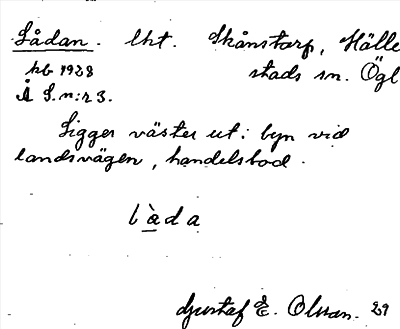 Lådan. lht. Skånstorp, Hälle
hb 1928 stads sn. Ögl
Å S.n:r 3.
Ligger väster ut i byn vid
landsvägen, handelsbod.
làda
Gustaf E. Olsson. 29